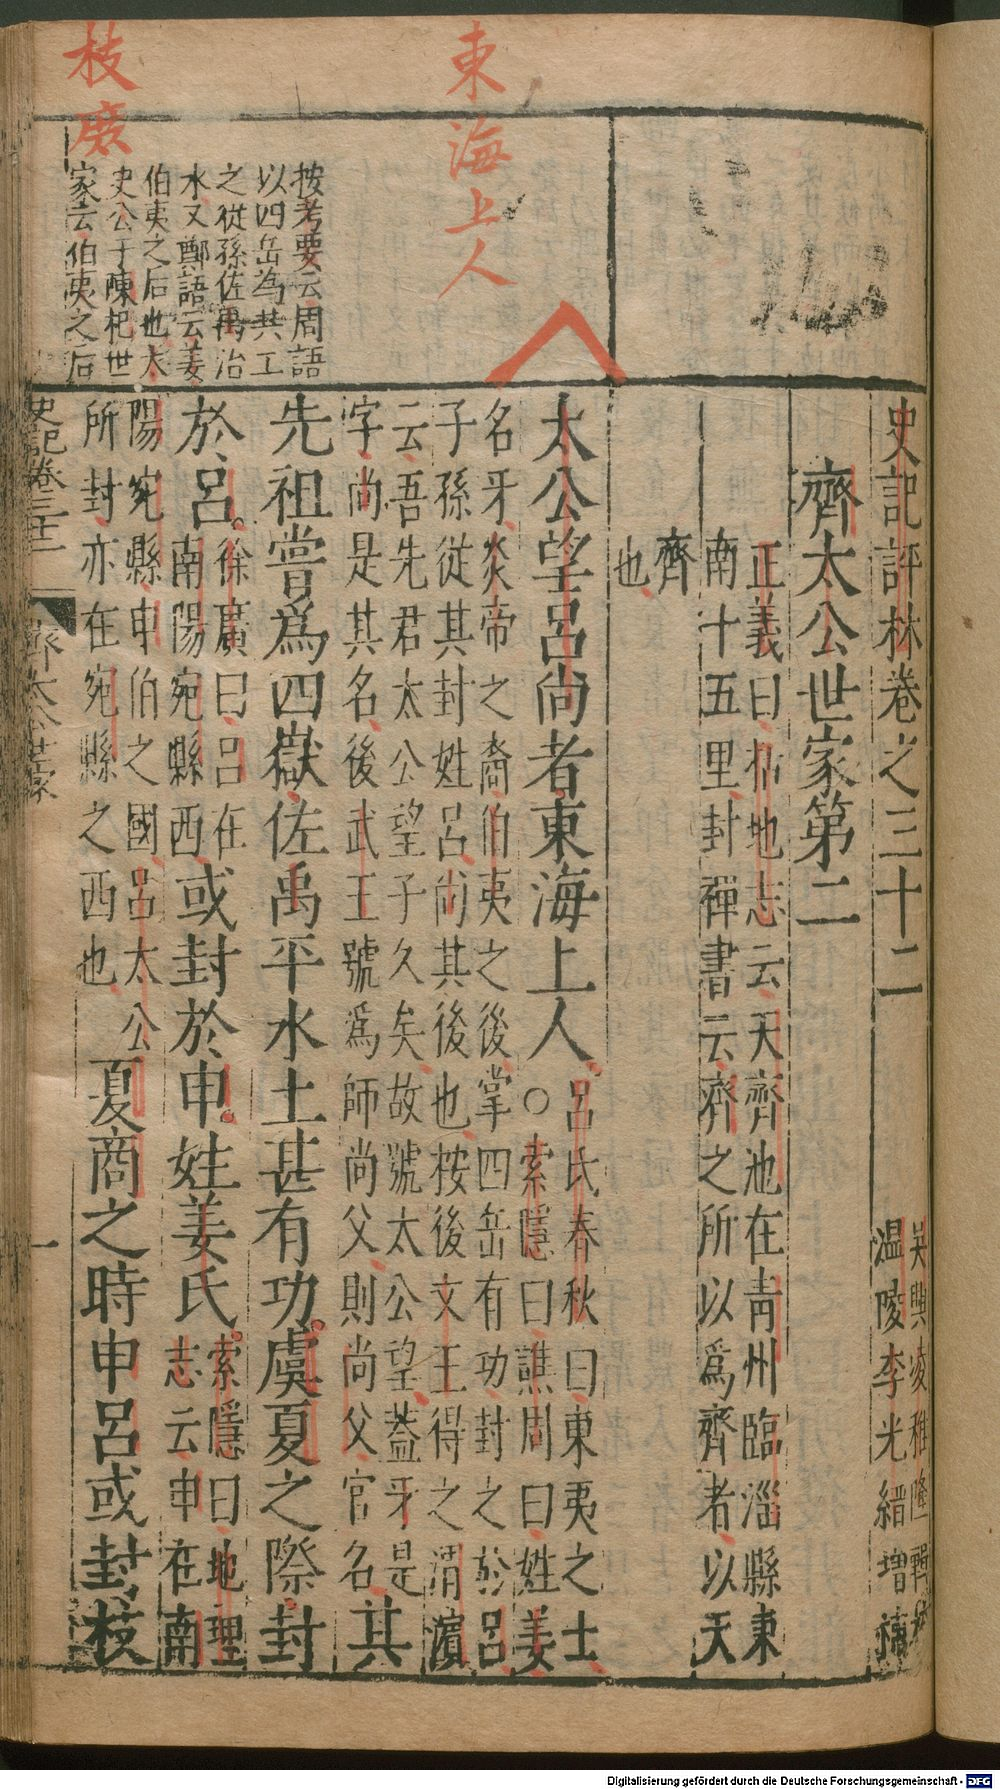 史記評林卷之三十二
吳興凌稚隆輯校
溫陵李光縉增補
齊太公世家第二
正義曰括地志云天齊池在青州臨淄縣東
南十五里封禪書云齊之所以爲齊者以天
齊
也
太公望呂尚者東海上人
呂氏春秋曰東夷之士
○索隱曰譙周曰姓姜
名牙炎帝之裔伯夷之後掌四岳有功封之於呂
子孫從其封姓呂尚其後也按後文王得之渭濱
云吾先君太公望子久矣故號太公望蓋牙是
字尚是其名後武王號爲師尚父則尚父官名
其
先祖嘗爲四嶽佐禹平水土甚有功虞夏之際封
於呂
徐廣曰呂在
南陽宛縣西
或封於申姓姜氏
索隱曰地理
志云申在南
陽宛縣申伯之國呂太公
所封亦在宛縣之西也
夏商之時申呂或封枝
史記卷三十二
齊太公世家
一
東海上人
枝庶
按考要云周語
以四岳為共工
之從孫佐禹治
水又鄭語云姜
伯夷之后也太
史公于陳杞世
家云伯夷之后
Digitalisierung gefördert durch die Deutsche Forschungsgemeinschaft - DFG